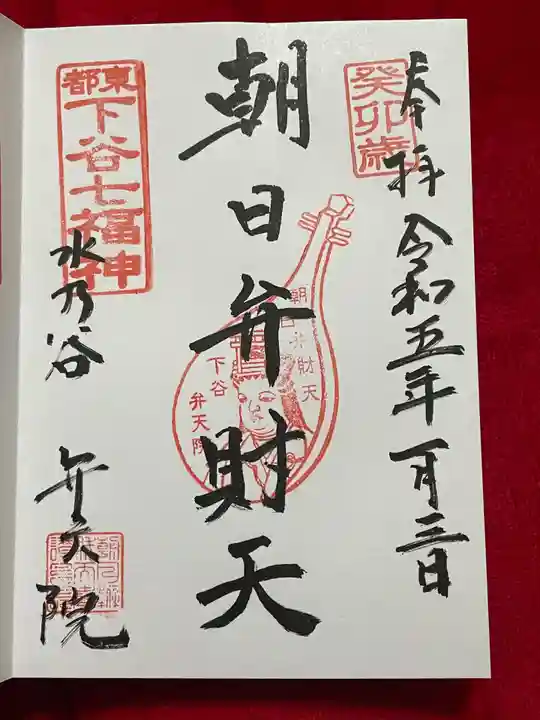 癸卯歳
奉拝 令和五年一月三日
朝日弁財天
朝日弁財天
下谷
弁天院
東都
下谷七福神
水乃谷 弁天院